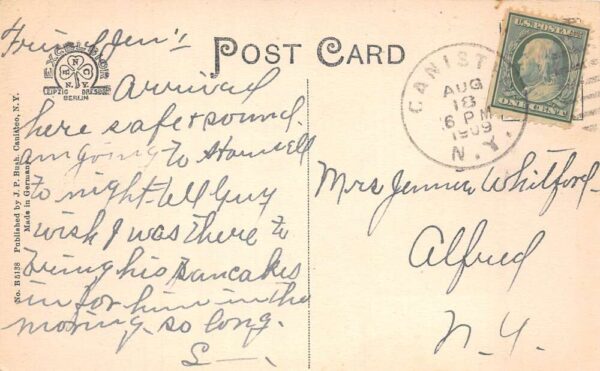 Friend Jen's
EXCELSIOR
A N C
N.Y.
LEIPZIG DRESDEN
BERLIN
POST CARD
Arrived
here safe & sound.
am going to Hornell
to night. tell Guy
wish I was there to
bring his pancakes
in for him in the
morning. so long.
S—.
No. B 5138 Published by J. P. Bush, Canisteo, N. Y.
Made in Germany
CANIST
AUG
18
6 PM
1909
N.Y.
U.S. POSTAGE
ONE CENT
Mrs Jennie Whitford
Alfred
N. Y.